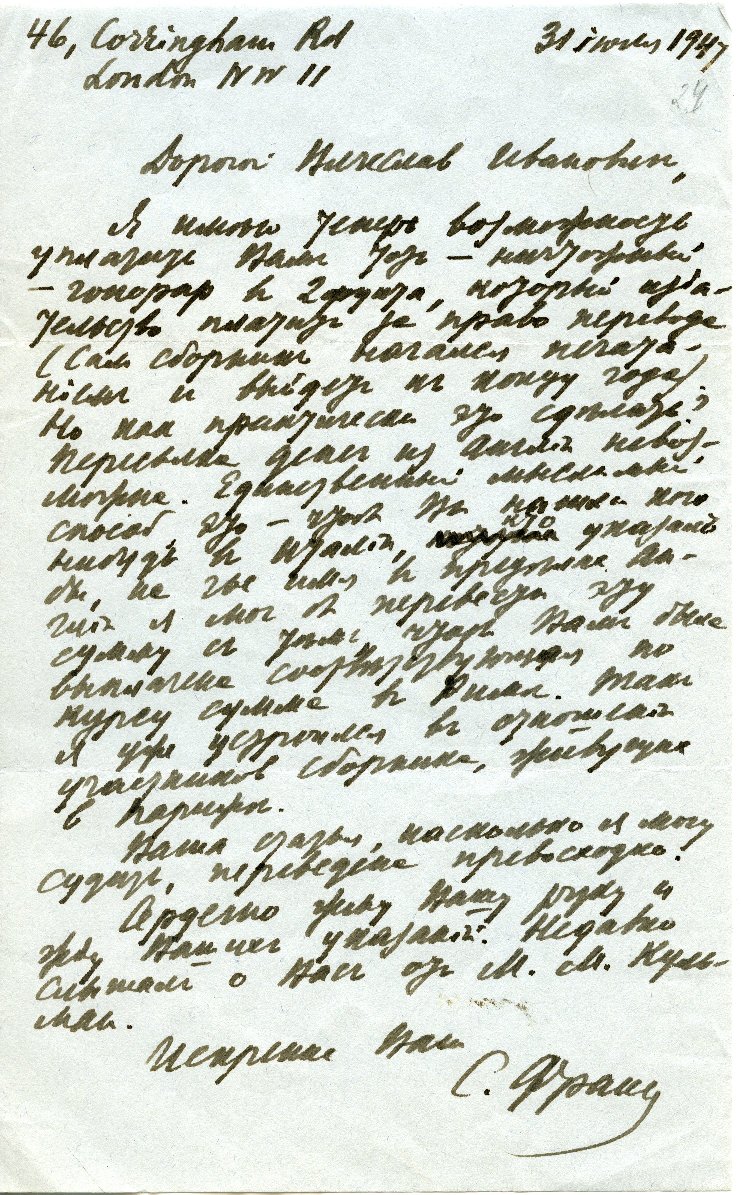 46, Corringham Rd 31 июля 1947
London NW 11
24
Дорогой Вячеслав Иванович,
Я имею теперь возможность
уплатить Вам тот – ничтожный
– гонорар в 2 фунта, который изда-
тельство платит за право перевода
(Сам сборник начался печата-
нієм и выйдет к концу года).
Но как практически это сдѣлать?
Пересылка денег из Англіи невоз-
можна. Единственный мыслимый
способ, это – чтоб Вы нашли кого
нибудь в Италіи, кто указал
бы, на чье имя в предѣлах Ан-
гліи я мог бы перевести эту
сумму с тѣм, чтоб Вам была
выплачена соотвѣтствующая по
курсу сумма в Римѣ. Так
я уже устроился в отношеніи
участников сборника, живущих
в Парижѣ.
Ваша статья, насколько я могу
судить, переведена превосходно.
Сердечно жму Вашу руку и
жду Ваших указаній. Недавно
слышал о Вас от М. М. Куль-
ман.
Искренне Ваш
С. Франк